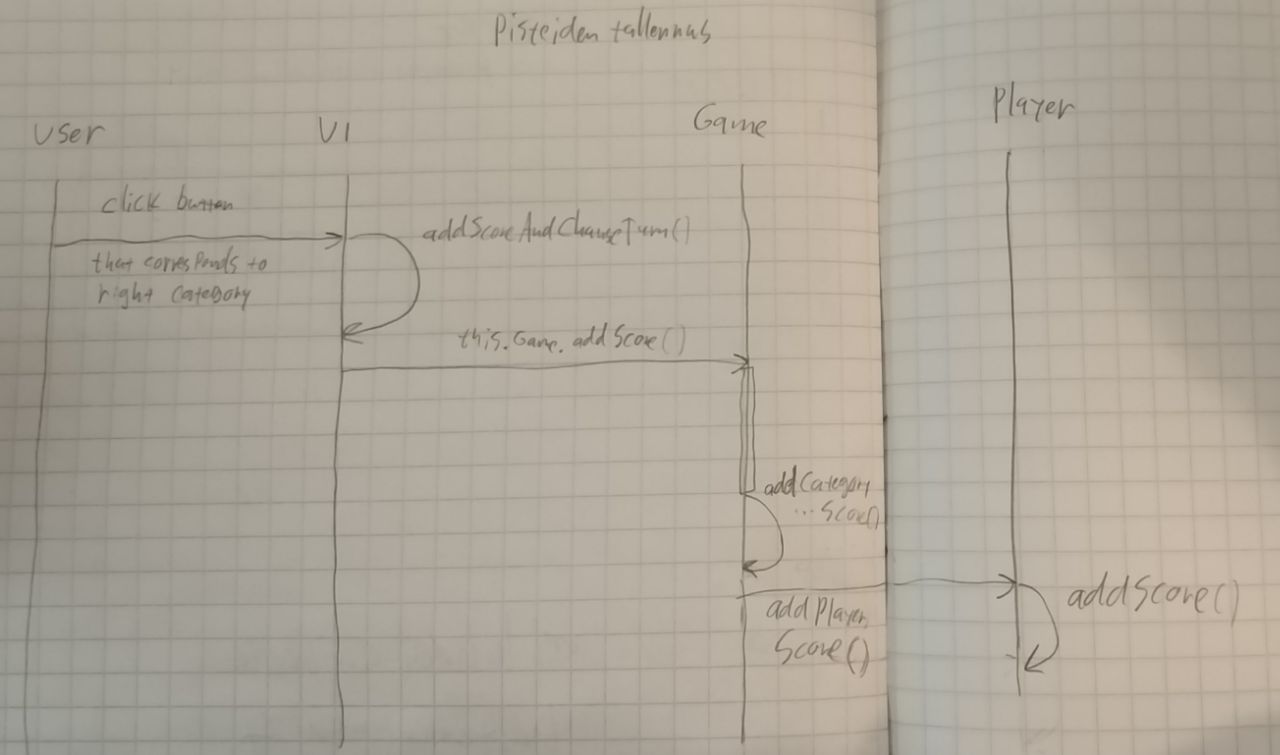 Pisteiden tallennus
User
UI
Game
Player
click button
that corresponds to
right category
addScoreAndChangeTurn()
this.Game.addScore()
addCategory
...Score()
addPlayer
Score()
addScore()